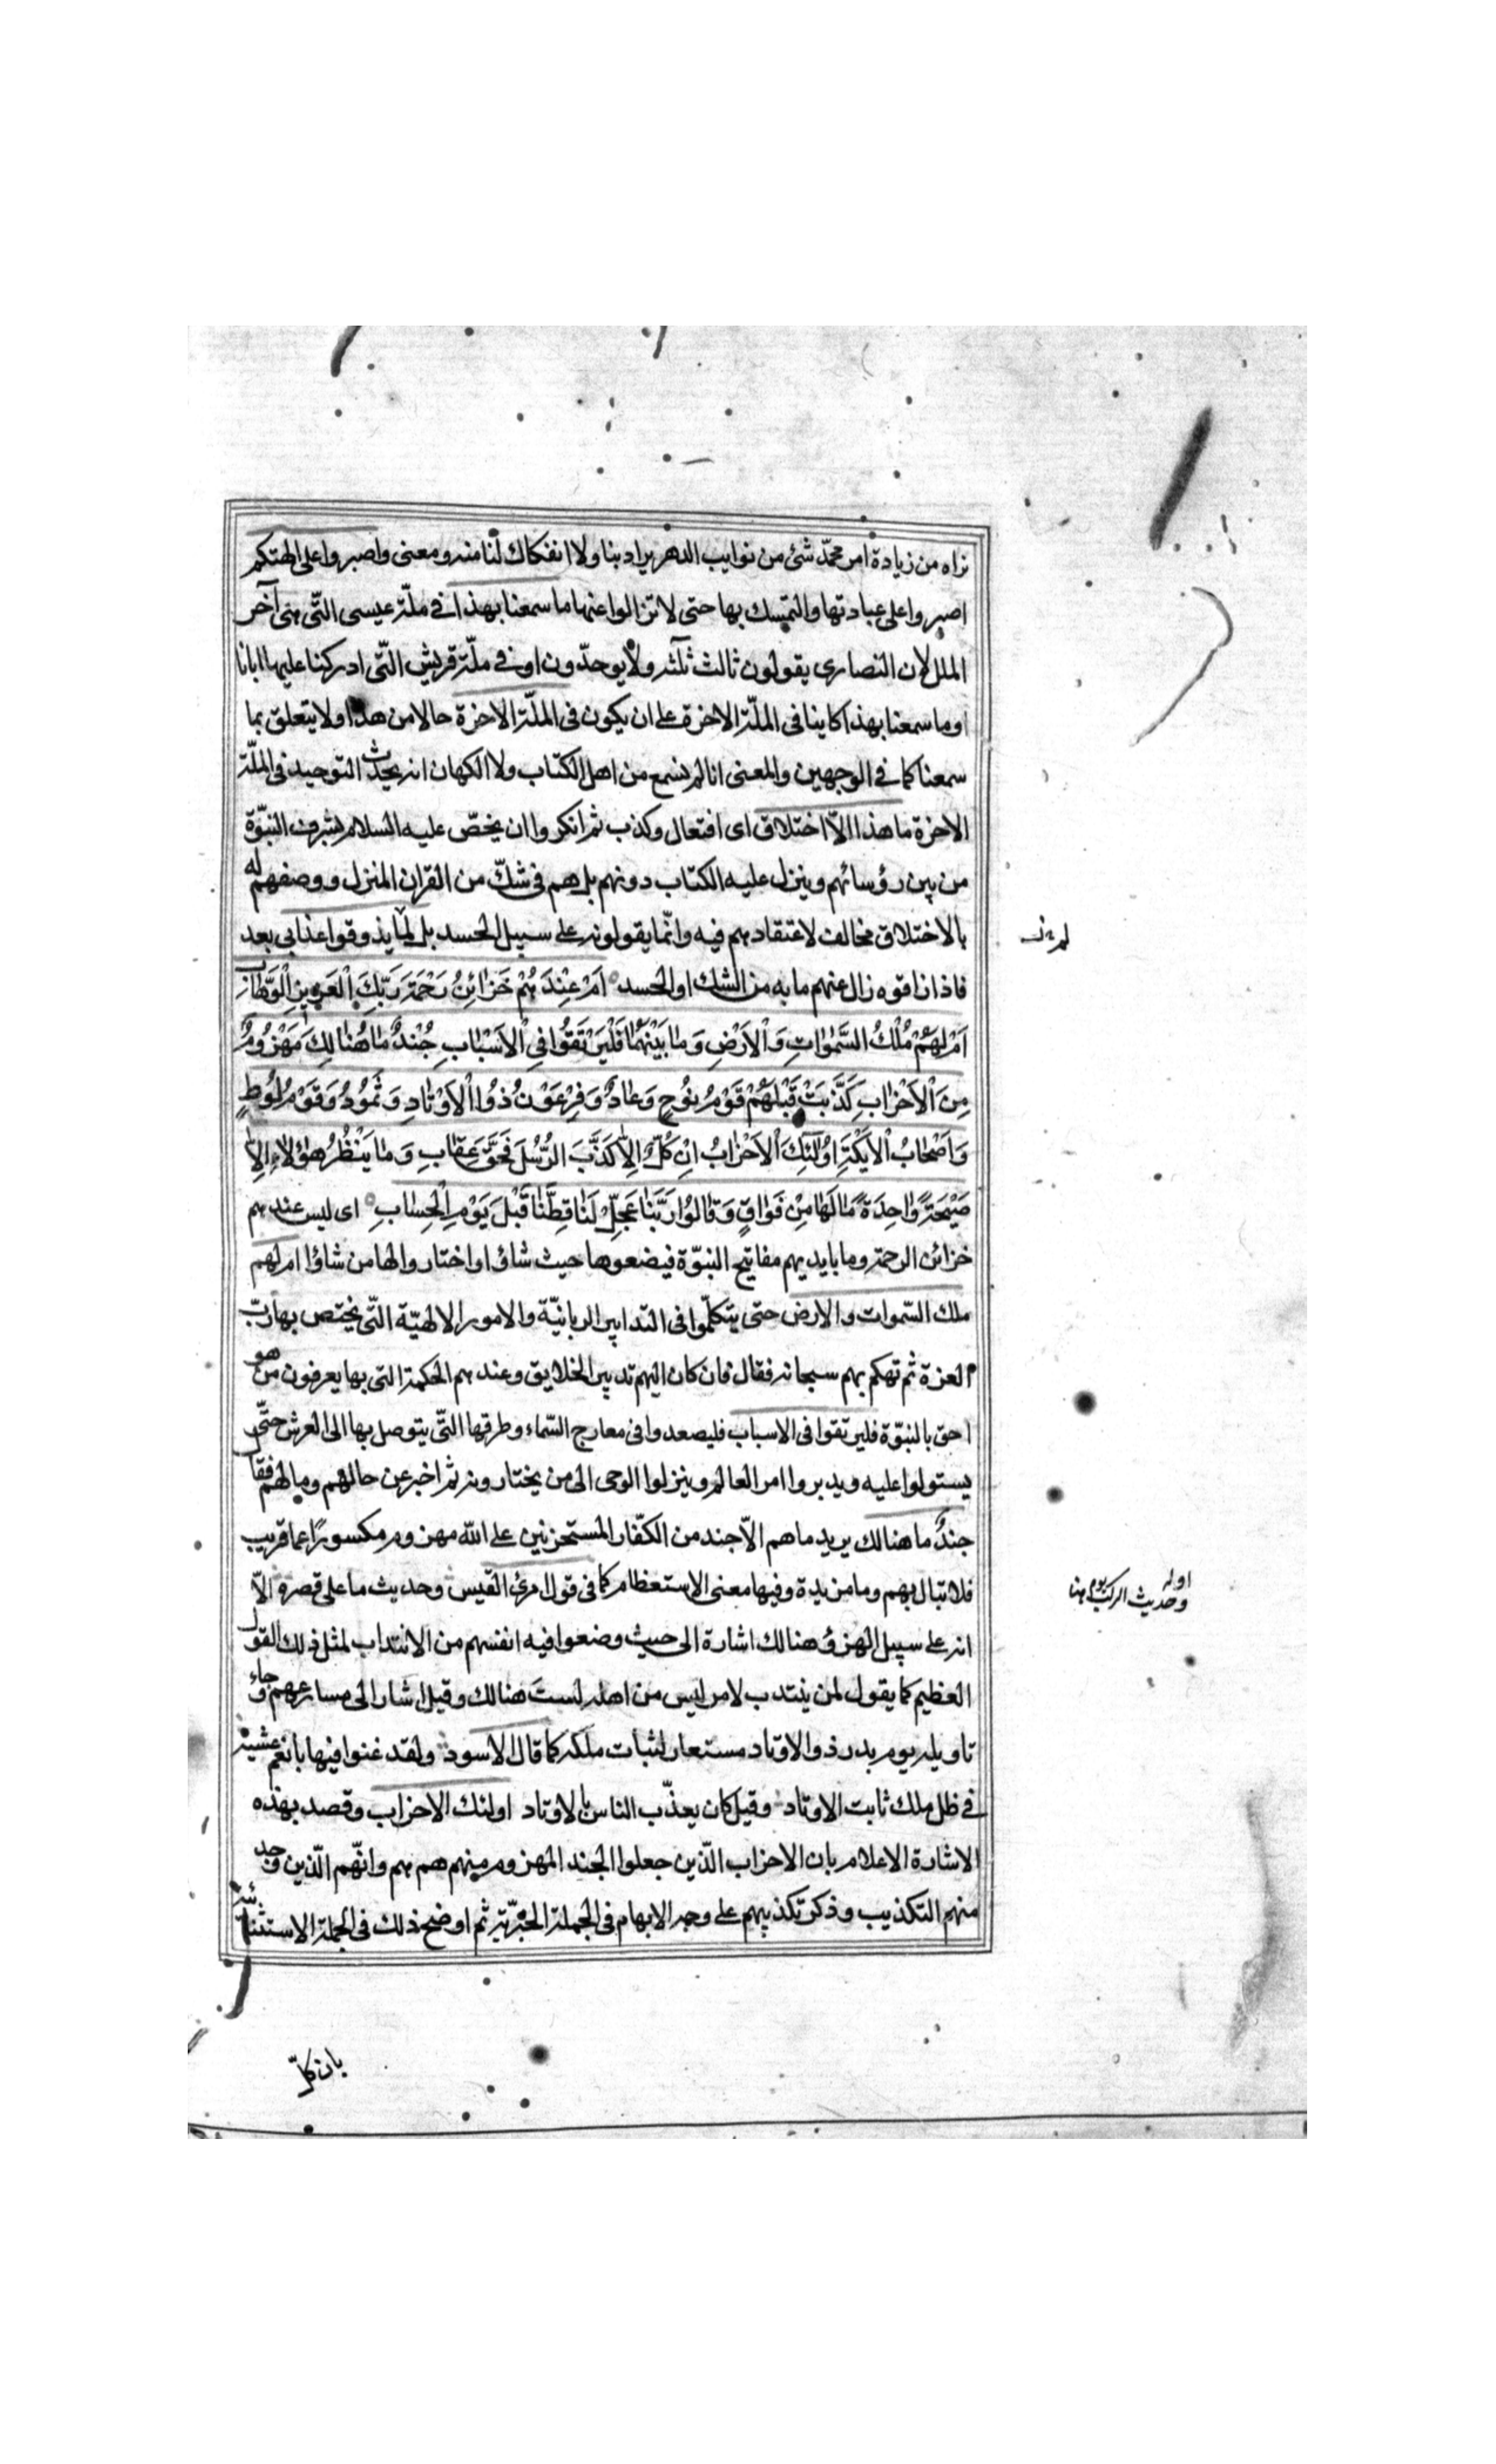 نراه من زيادة امر محمّد شئ من نوايب الدهر يراد بنا ولا انفكاك لنا منه ومعنى واصبروا على الهتكم
اصبروا على عبادتها والتمسك بها حتى لا تزالوا عنها ما سمعنا بهذا في ملّة عيسى التّى هى آخر
الملل لان النصارى يقولون ثالث ثلثه ولا يوحدّون او في ملّة قريش التّى ادركنا عليها ابانا
او ما سمعنا بهذا كاينا فى الملّة الاخرة على ان يكون فى الملّة الاخرة حالا من هذا ولا يتعلق بما
سمعنا كما في الوجهين والمعنى انا لم نسمع من اهل الكتاب ولا الكهان انه يحدث التوحيد فى الملّة
الاخرة ما هذا الاّ اختلاق اى افتعال وكذب ثم انكروا ان يخصّ عليه السلام بشرف النبوّة
من بين رؤسائهم وينزل عليه الكتاب دونهم بل هم فى شكّ من القران المنزل ووصفهم له
بالاختلاق مخالف لاعتقادهم فيه وانّما يقولونه على سبيل الحسد بل لمّا يذوقوا عذابى بعد
فاذا ذاقوه زال عنهم ما به من الشك او الحسد اَمْ عِنْدَهُمْ خَزائِنُ رَحْمَةِ رَبِّكَ الْعَزيزِ الْوَهَّابِ
اَمْ لَهُمْ مُلْكُ السَّمٰوٰاتِ وَالْاَرْضِ وَمٰا بَيْنَهُمٰا فَلْيَرْتَقُوا فِي الْاَسْبٰابِ جُنْدٌ مٰا هُنٰالِكَ مَهْزُومٌ
مِنَ الْاَحْزٰابِ كَذَّبَتْ قَبْلَهُمْ قَوْمُ نوُحٍ وَعٰادٌ وَفِرْعَوْنُ ذوُا الْاَوْتٰادِ وَثَمُودُ وَقَوْمُ لُوطٍ
وَاَصْحٰابُ الْاَيْكَةِ اوُلٰئِكَ الْاَحْزٰابُ اِنْ كُلٌّ اِلّٰا كَذَّبَ الرُّسُلَ فَحَقَّ عِقٰابِ وَمٰا يَنْظُرُ هٰؤُلٰاءِ اِلّٰا
صَيْحَةً وٰاحِدَةً مٰا لَهٰا مِنْ فَوٰاقٍ وَقٰالوُا رَبَّنٰا عَجِّلْ لَنٰا قِطَّنٰا قَبْلَ يَوْمِ الْحِسٰابِ اى ليس عندهم
خزائن الرحمة وما بايديهم مفاتيح النبوّة فيضعوها حيث شاؤا واختاروا لها من شاؤا ام لهم
ملك السّموات والارض حتى يتكلّموا فى التدابير الربانيّة والامور الالهيّة التّى يختص بها ربّ
العزة ثم تهكم بهم سبحانه فقال فان كان اليهم تدبير الخلايق وعندهم الحكمة التى بها يعرفون من هو
احق بالنبوّة فليرتقوا فى الاسباب فليصعدوا فى معارج السّماء وطرقها التّى يتوصل بها الى العرش حتّى
يستولوا عليه ويدبروا امر العالم وينزلوا الوحى الى من يختارونه ثم اخبر عن حالهم ومالهم فقال
جندٌ ما هنالك يريد ما هم الاّ جند من الكفّار المستحزنين على اللّه مهزوم مكسورًا عما قريب
فلا تبال بهم وما مزيدة وفيها معنى الاستعظام كما فى قول امرئ القيس وحديث ما على قصره الاّ
انه على سبيل الهزؤ وهنالك اشارة الى حيث وضعوا فيه انفسهم من الانتداب لمثل ذلك القول
العظيم كما يقول لمن ينتدب لامر ليس من اهله لستَ هنالك وقيل اشار الى مسارعهم وجاء
تاويله يوم بدر ذو الاوتاد مستعار لثبات ملكه كما قال الاسود ولقد غنوا فيها بانعم عشية
في ظل ملك ثابت الاوتاد وقيل كان يعذّب الناس بالاوتاد اولئك الاحزاب وقصد بهذه
الاشارة الاعلام بان الاحزاب الّذين جعلوا الجند المهزوم منهم هم هم وانّهم الّذين وجد
منهم التكذيب وذكر تكذيبهم على وجه الابهام فى الجملة الخبريّة ثم اوضح ذلك فى الجملة الاستثنائية
اوله
وحديث الركب يوم هنا
بان كلّ